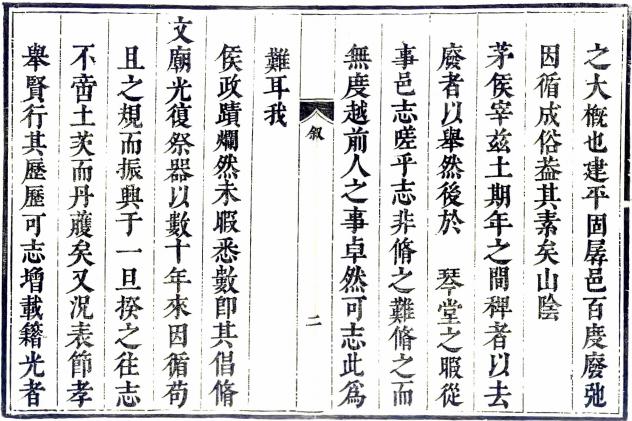 之大槪也建平固孱邑百度廢弛
因循成俗葢其素矣山陰
茅侯宰兹土期年之間稗者以去
廢者以舉然後於 琴堂之暇從
事邑志嗟乎志非脩之難脩之而
無度越前人之事卓然可志此爲
敘
二
難耳我
侯政蹟爛然未暇悉數卽其倡脩
文廟光復祭器以數十年來因循苟
且之規而振興于一旦揆之往志
不啻土茨而丹雘矣又況表節孝
舉賢行其歷歷可志增載籍光者